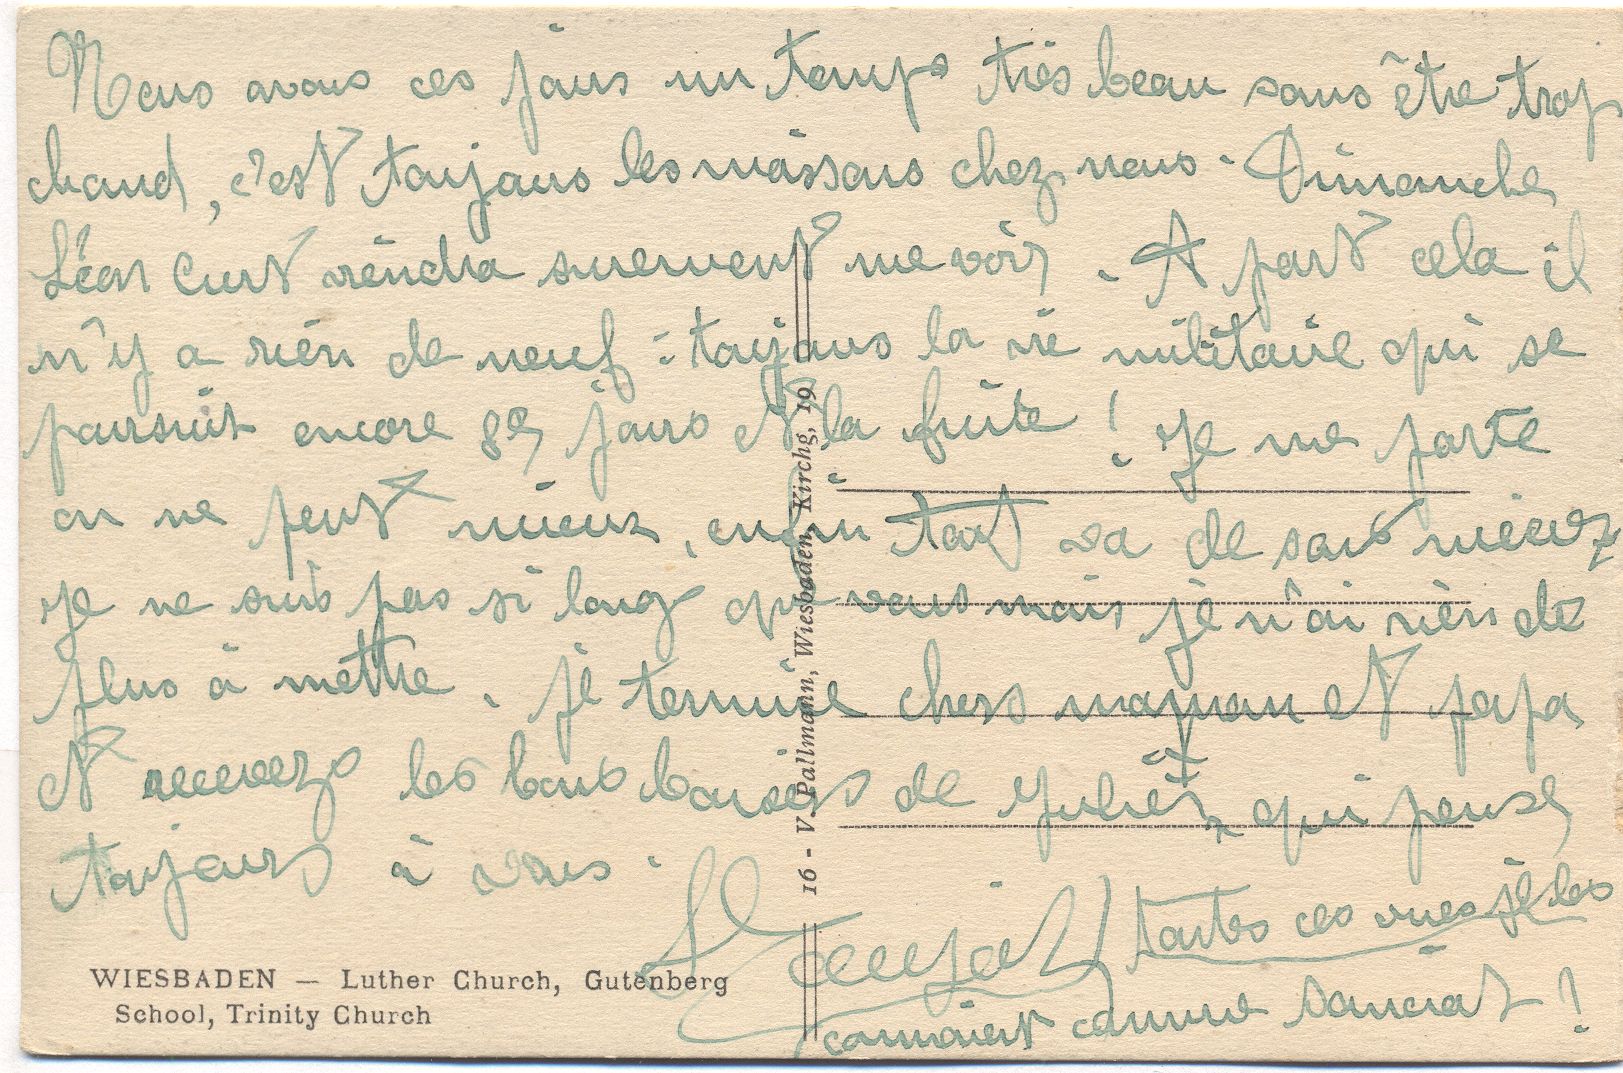 Nous avons ces jours un temps très beau sans être trop
chaud, c'est toujours les moissons chez nous. Dimanche
Léon Curt viendra surement me voir. A part cela il
n'y a rien de neuf : toujours la vie militaire qui se
poursuit encore 89 jours et la fuite ! Je me porte
on ne peut mieux, enfin tout va de sous mieux
je ne suis pas si long que vous mais je n'ai rien de
plus à mettre. je termine chers maman et papa
et recevez les bons baisers de Julien qui pense
toujours à vous.
toutes ces vues je les
connaient comme
WIESBADEN — Luther Church, Gutenberg
School, Trinity Church
16 - V. Pallmann, Wiesbaden, Kirchg. 19